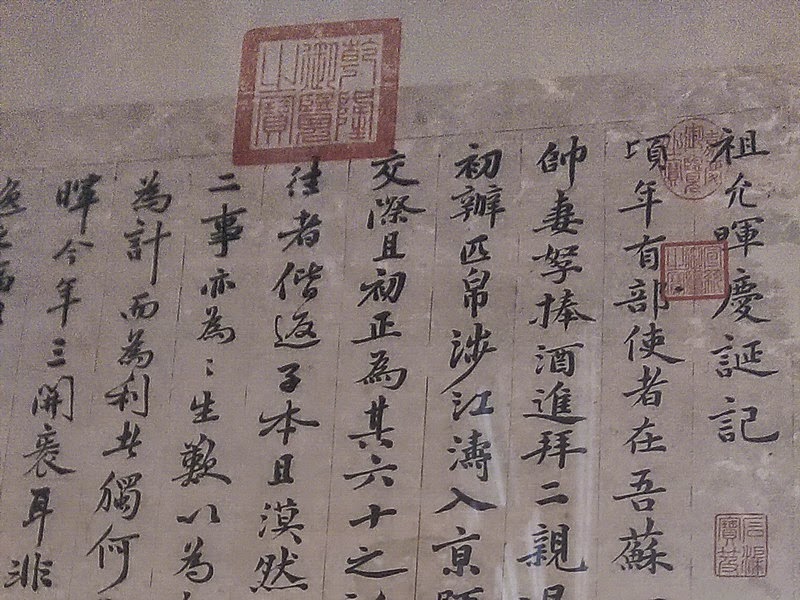 祖允暉慶誕記
頃年有部使者在吾蘇
帥妻孥捧酒進拜二親
初辦匹帛涉江濤入京
交際且初正為其六十之
往者偕返子本且漠然
二事亦為〻生歎以為
為計而為利者獨何
暉今年三開袠耳非
乾隆御覽之寶